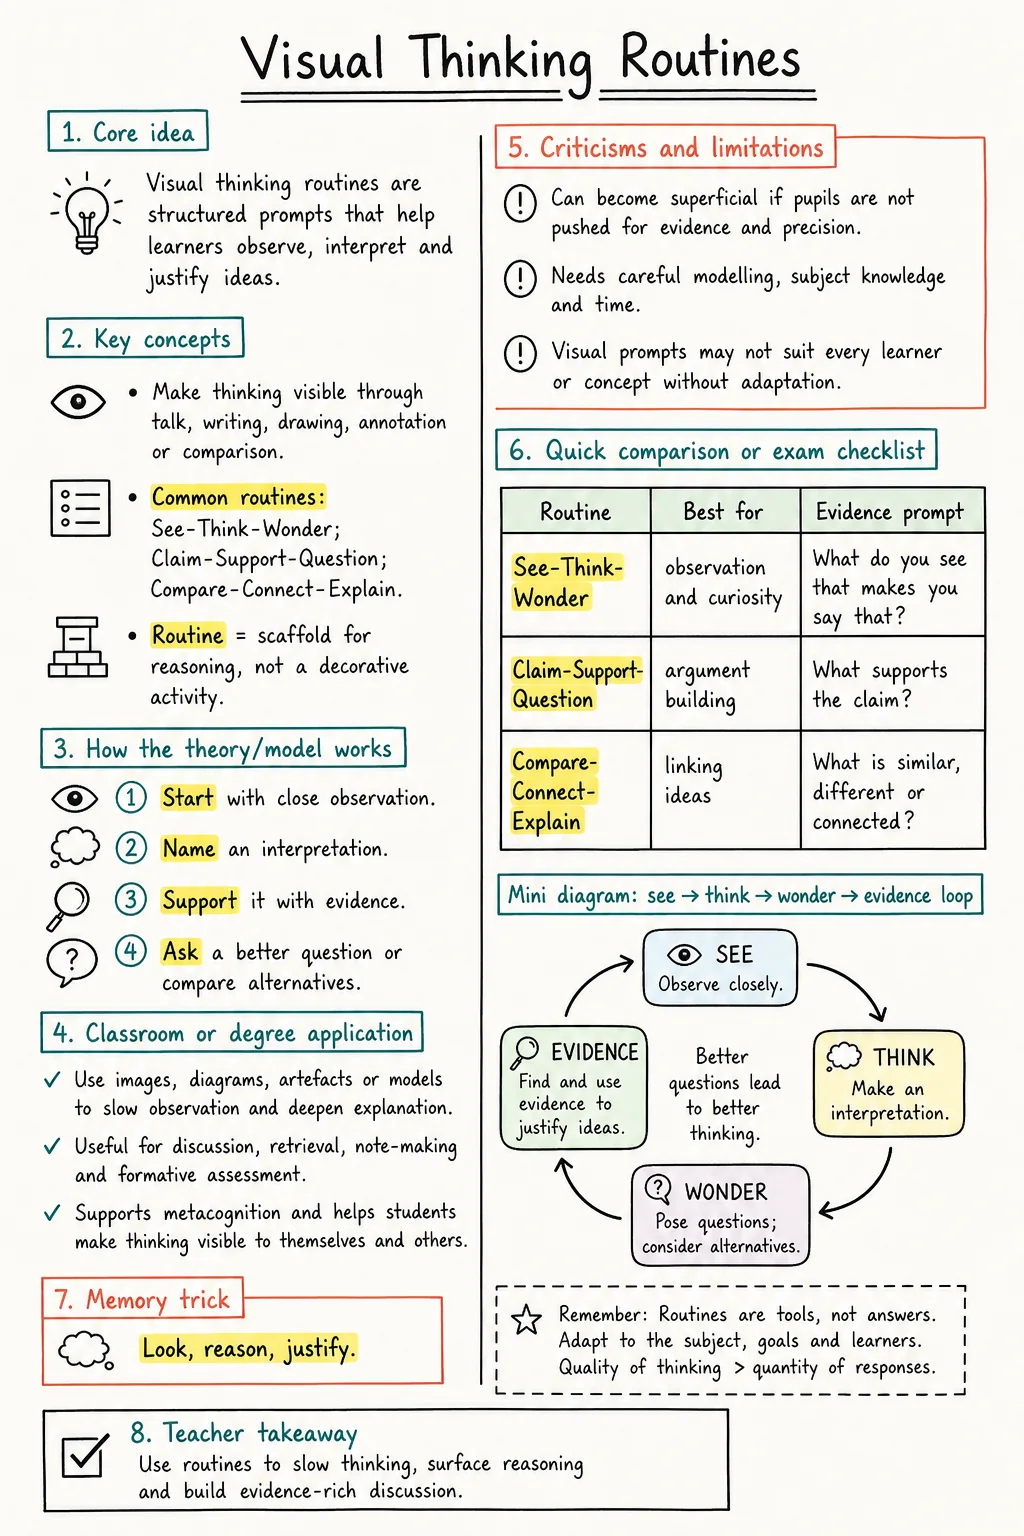 Visual Thinking Routines
1. Core idea
Visual thinking routines are
structured prompts that help
learners observe, interpret and
justify ideas.
2. Key concepts
• Make thinking visible through
talk, writing, drawing, annotation
or comparison.
• Common routines:
See-Think-Wonder;
Claim-Support-Question;
Compare-Connect-Explain.
• Routine = scaffold for
reasoning, not a decorative
activity.
3. How the theory/model works
1 Start with close observation.
2 Name an interpretation.
3 Support it with evidence.
? 4 Ask a better question or
compare alternatives.
4. Classroom or degree application
✓ Use images, diagrams, artefacts or models
to slow observation and deepen explanation.
✓ Useful for discussion, retrieval, note-making
and formative assessment.
✓ Supports metacognition and helps students
make thinking visible to themselves and others.
7. Memory trick
Look, reason, justify.
5. Criticisms and limitations
! Can become superficial if pupils are not
pushed for evidence and precision.
! Needs careful modelling, subject knowledge
and time.
! Visual prompts may not suit every learner
or concept without adaptation.
6. Quick comparison or exam checklist
Routine Best for Evidence prompt
See-Think-
Wonder
observation
and curiosity
What do you see
that makes you
say that?
Claim-Support-
Question
argument
building
What supports
the claim?
Compare-
Connect-
Explain
linking
ideas
What is similar,
different or
connected?
Mini diagram: see → think → wonder → evidence loop
SEE
Observe closely.
THINK
Make an
interpretation.
? WONDER
Pose questions;
consider alternatives.
EVIDENCE
Find and use
evidence to
justify ideas.
Better
questions lead
to better
thinking.
Remember: Routines are tools, not answers.
Adapt to the subject, goals and learners.
Quality of thinking > quantity of responses.
8. Teacher takeaway
Use routines to slow thinking, surface reasoning
and build evidence-rich discussion.